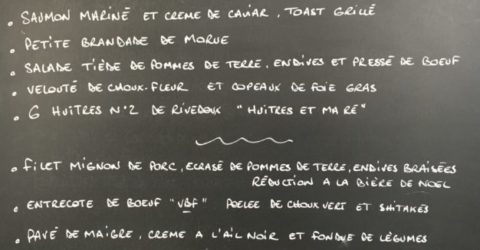 • SAUMON MARINÉ ET CREME DE CAVIAR, TOAST GRILLÉ
• PETITE BRANDADE DE MORUE
• SALADE TIÈDE DE POMMES DE TERRE, ENDIVES ET PRESSÉ DE BOEUF
• VELOUTÉ DE CHOUX-FLEUR ET COPEAUX DE FOIE GRAS
• 6 HUÎTRES N°2 DE RIVEDOUX "HUÎTRES ET MA RÉ"
• FILET MIGNON DE PORC, ECRASÉ DE POMMES DE TERRE, ENDIVES BRAISÉES
RÉDUCTION A LA BIÈRE DE NOEL
• ENTRECOTE DE BOEUF "VBF" POELEE DE CHOUX VERT ET SHITAKÉS
• PAVÉ DE MAIGRE, CREME A L'AIL NOIR ET FONDUE DE LÉGUMES